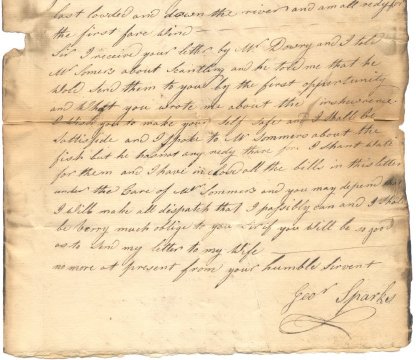 last loaded and down the river and am all ready for
the first fare Wind
Sir I received your letter by Mr Downy and I told
Mr Somers about Scantling and he told me that he
Wold Send them to you by the first opportunity
and What you wrote me about the inshurence
I Wish you to make your Self Safe and I Shall be
Sattisfide and I Spoke to Mr Sommers about the
fish but he has not any redy therefor I Shant Wate
for them and I have inclosd all the bills in this letter
under the Care of Mr Sommers and you may depend
I Will make all dispatch that I possibly can and I Shall
be berry much oblige to you if you Will be so good
as to Send my letter to my Wife
no more at present from your humble Servent
Geor Sparks